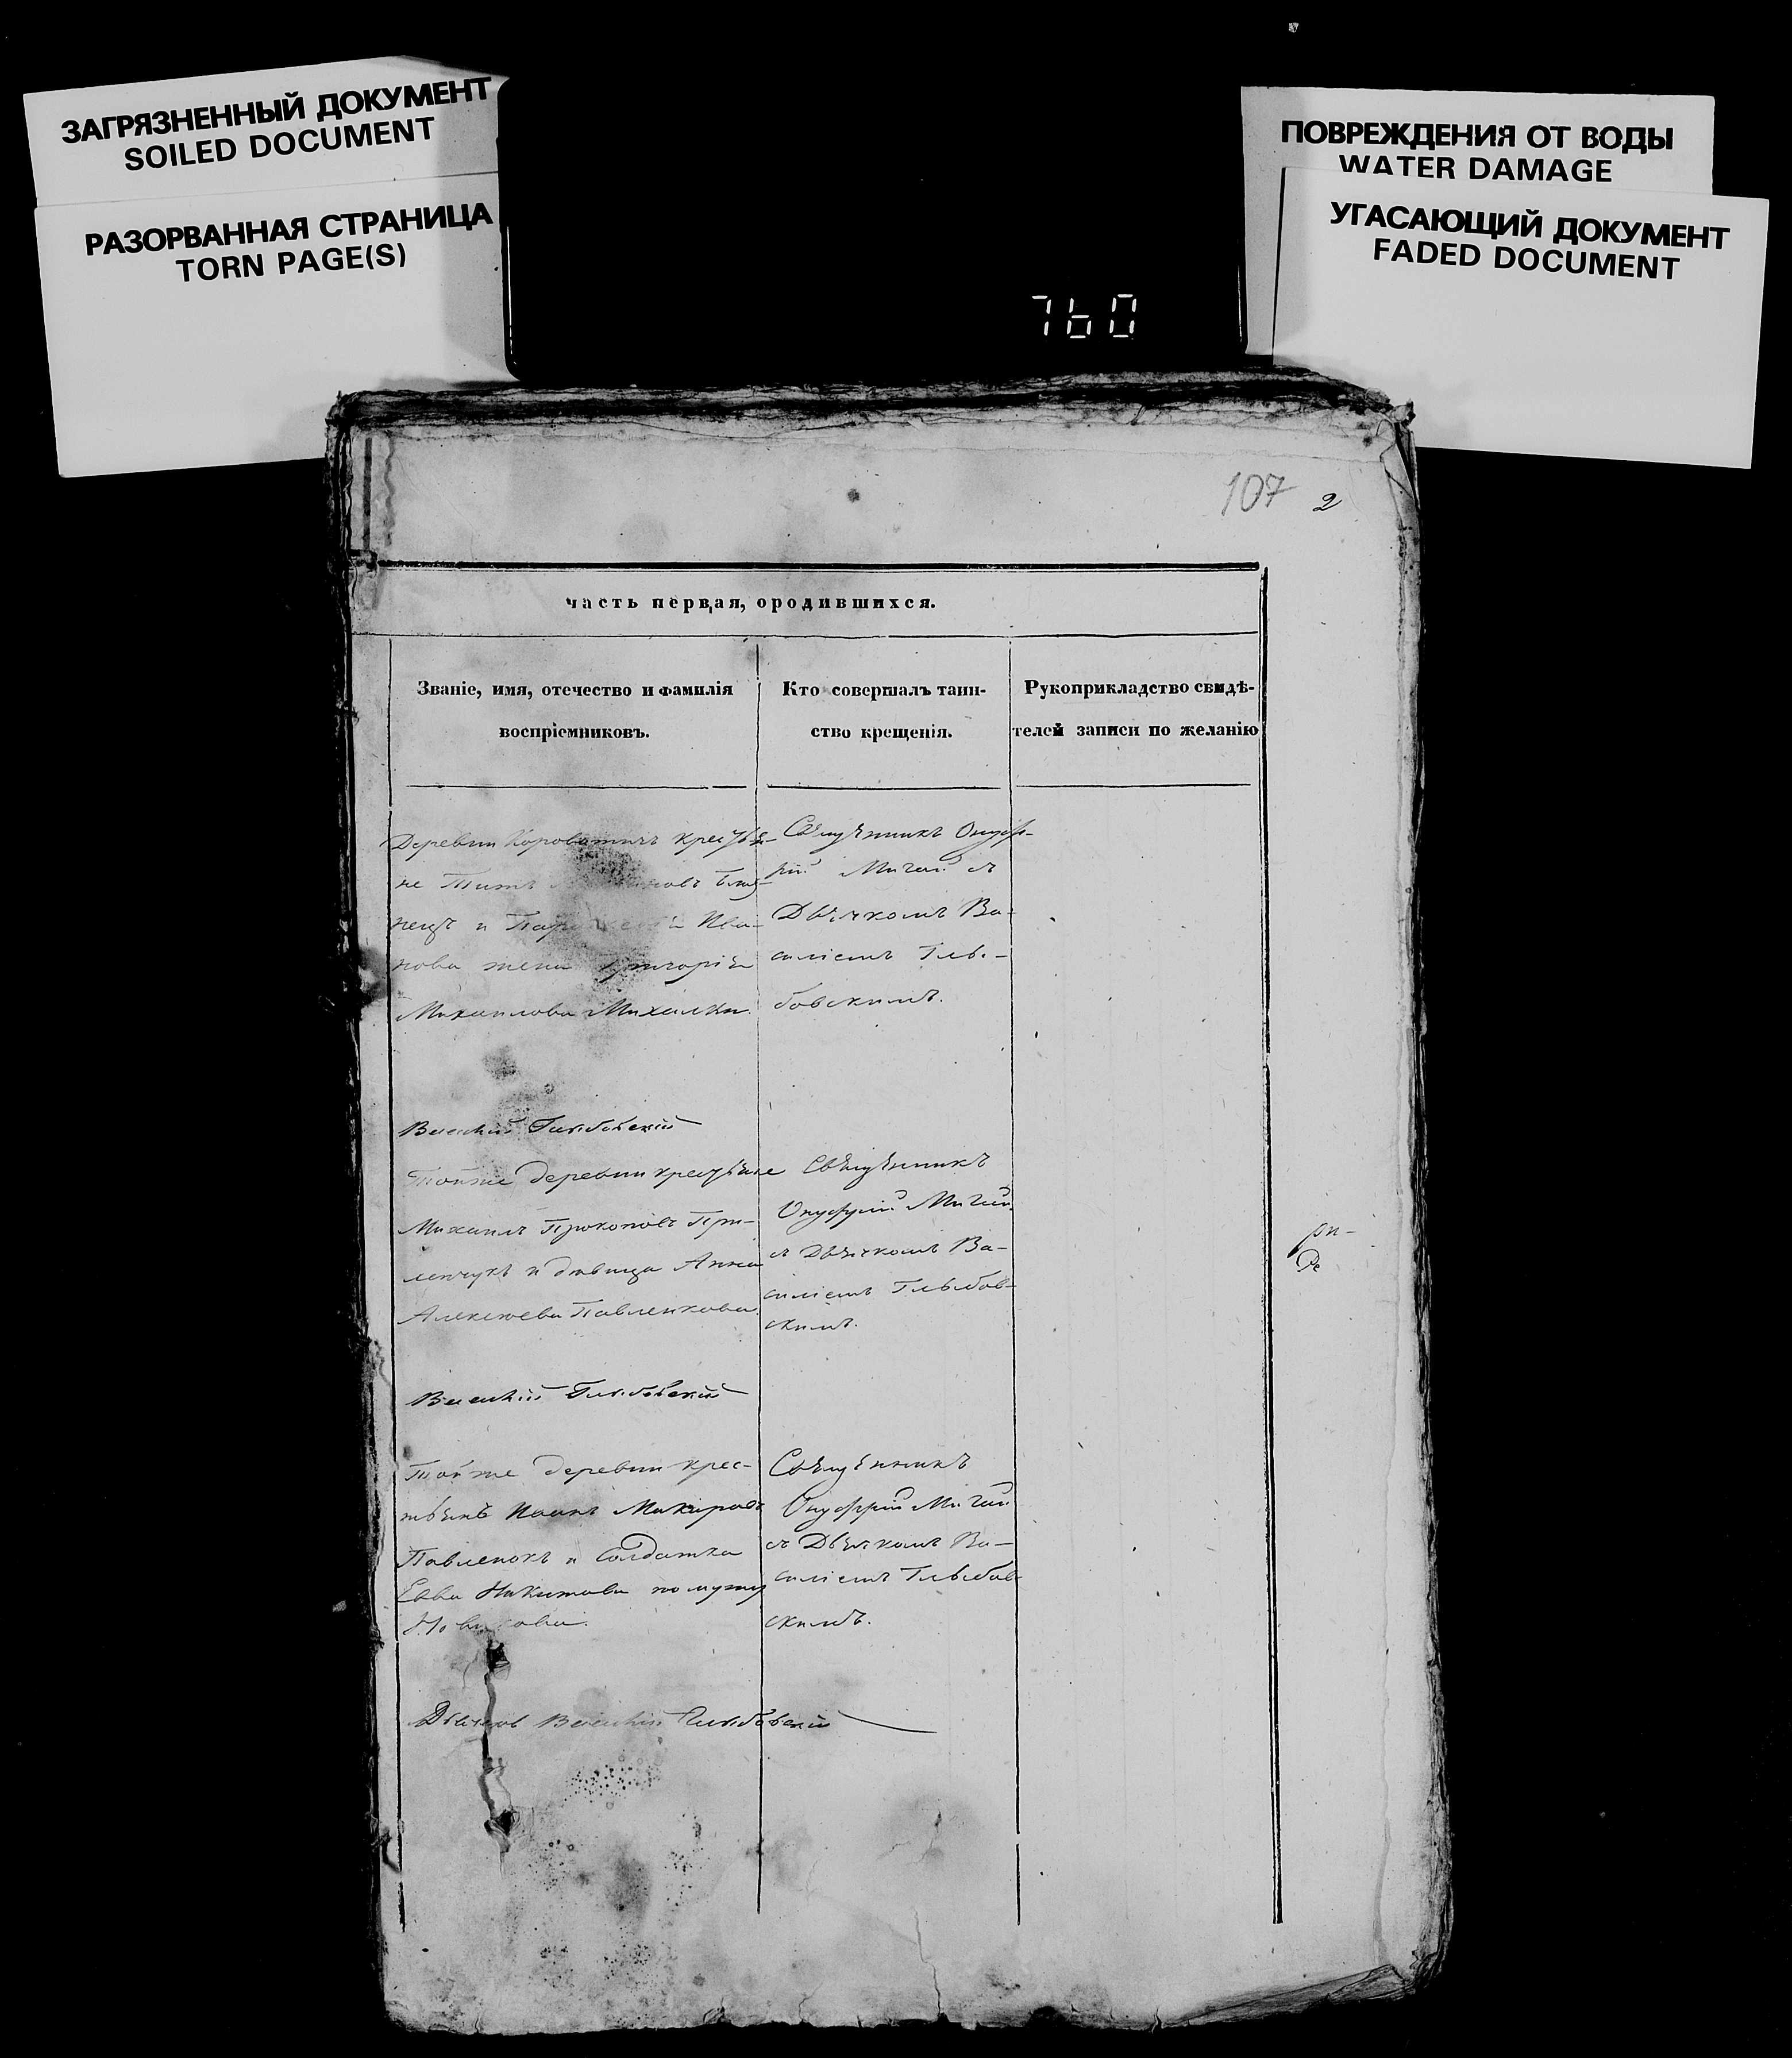 ЗАГРЯЗНЕННЫЙ ДОКУМЕНТ
SOILED DOCUMENT
РАЗОРВАННАЯ СТРАНИЦА
TORN PAGE(S)
ПОВРЕЖДЕНИЯ ОТ ВОДЫ
WATER DAMAGE
УГАСАЮЩИЙ ДОКУМЕНТ
FADED DOCUMENT
760
107 2
часть первая, ородившихся.
Званіе, имя, отечество и фамилія
воспріемниковъ.
Кто совершалъ таин-
ство крещенія.
Рукоприкладство свидѣ-
телей записи по желанію
Деревни крестья-
не Титъ
и Ива-
нова жена Григорія
Михаилова
Священникъ Онуф-
рій Мигай съ
Дьячкомъ Ва-
силіемъ Глы-
бовскимъ.
Василій Глыбовскій
Тойже деревни крестьяне
Михаилъ Прокоповъ При-
и дѣвица Анна
Алексѣева Павленкова.
Священникъ
Онуфрій Мигай
съ Дьячкомъ Ва-
силіемъ Глыбов-
скимъ.
Василій Глыбовскій
Тойже деревни крес-
тьянъ Иоанъ Макаровъ
Павленокъ и Солдатка
Евва Никитова по мужу
Священникъ
Онуфрій Мигай
съ Дьячкомъ Ва-
силіемъ Глыбов-
скимъ.
Дьячокъ Василій Глыбовскій
ри-